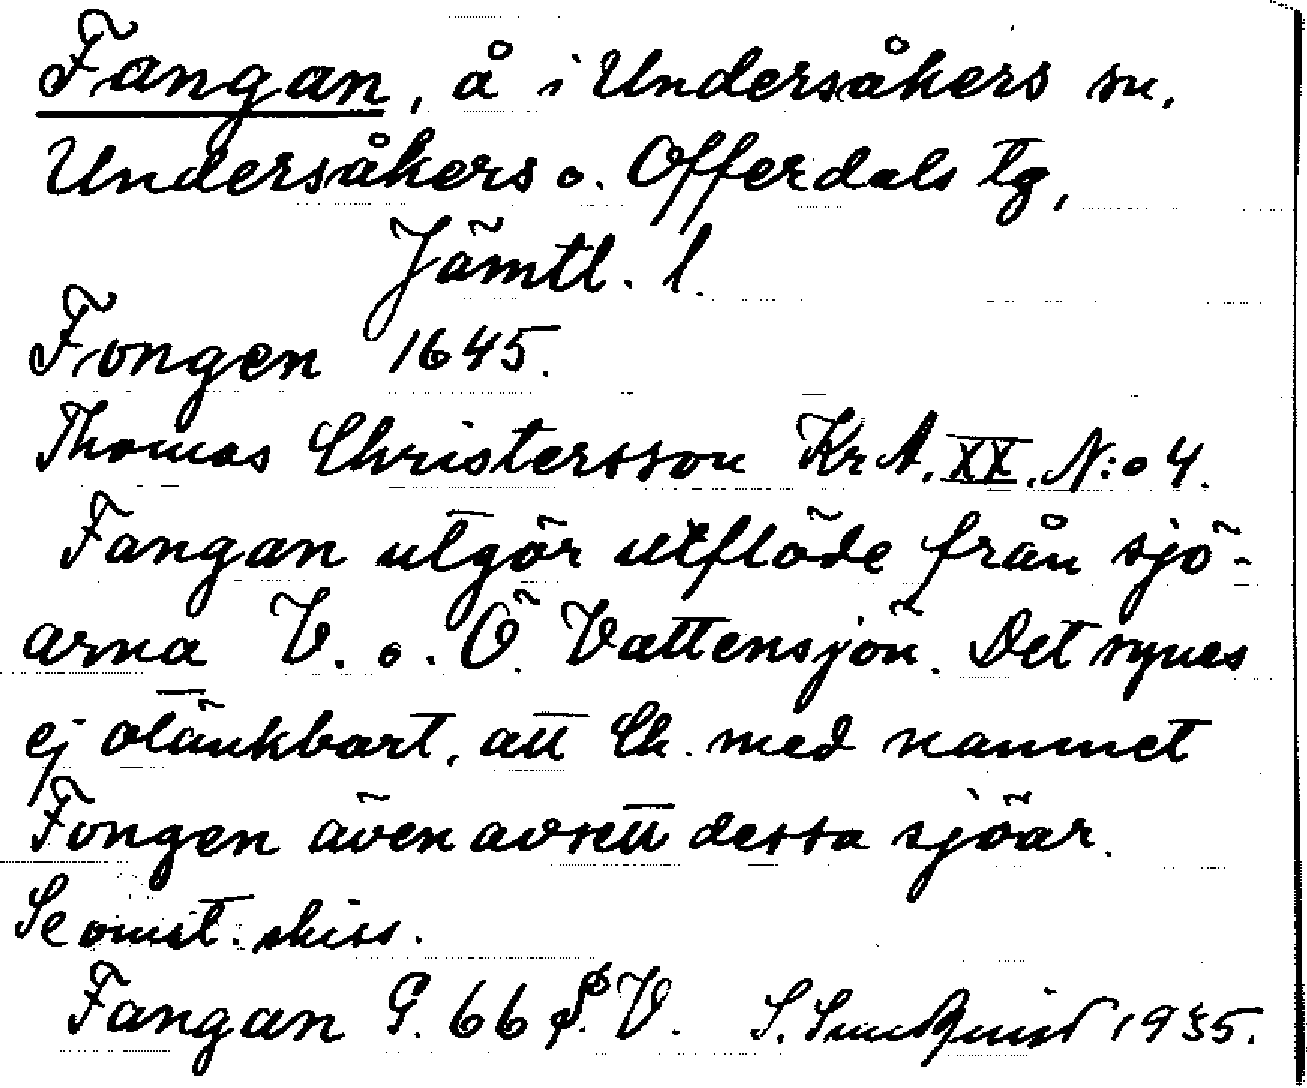 Fangan, å i Undersåkers sn,
Undersåkers o. Offerdals tg,
Jämtl. l.
Fongen 1645.
Thomas Christersson KrA. XX. N:o 4.
Fangan utgör utflöde från sjö-
arna V. o. Ö. Vattensjön. Det synes
ej otänkbart, att Ch. med namnet
Fongen även avsett dessa sjöar.
Se omst. skiss.
Fangan G. 66 S.V. S. Sundquist 1935.